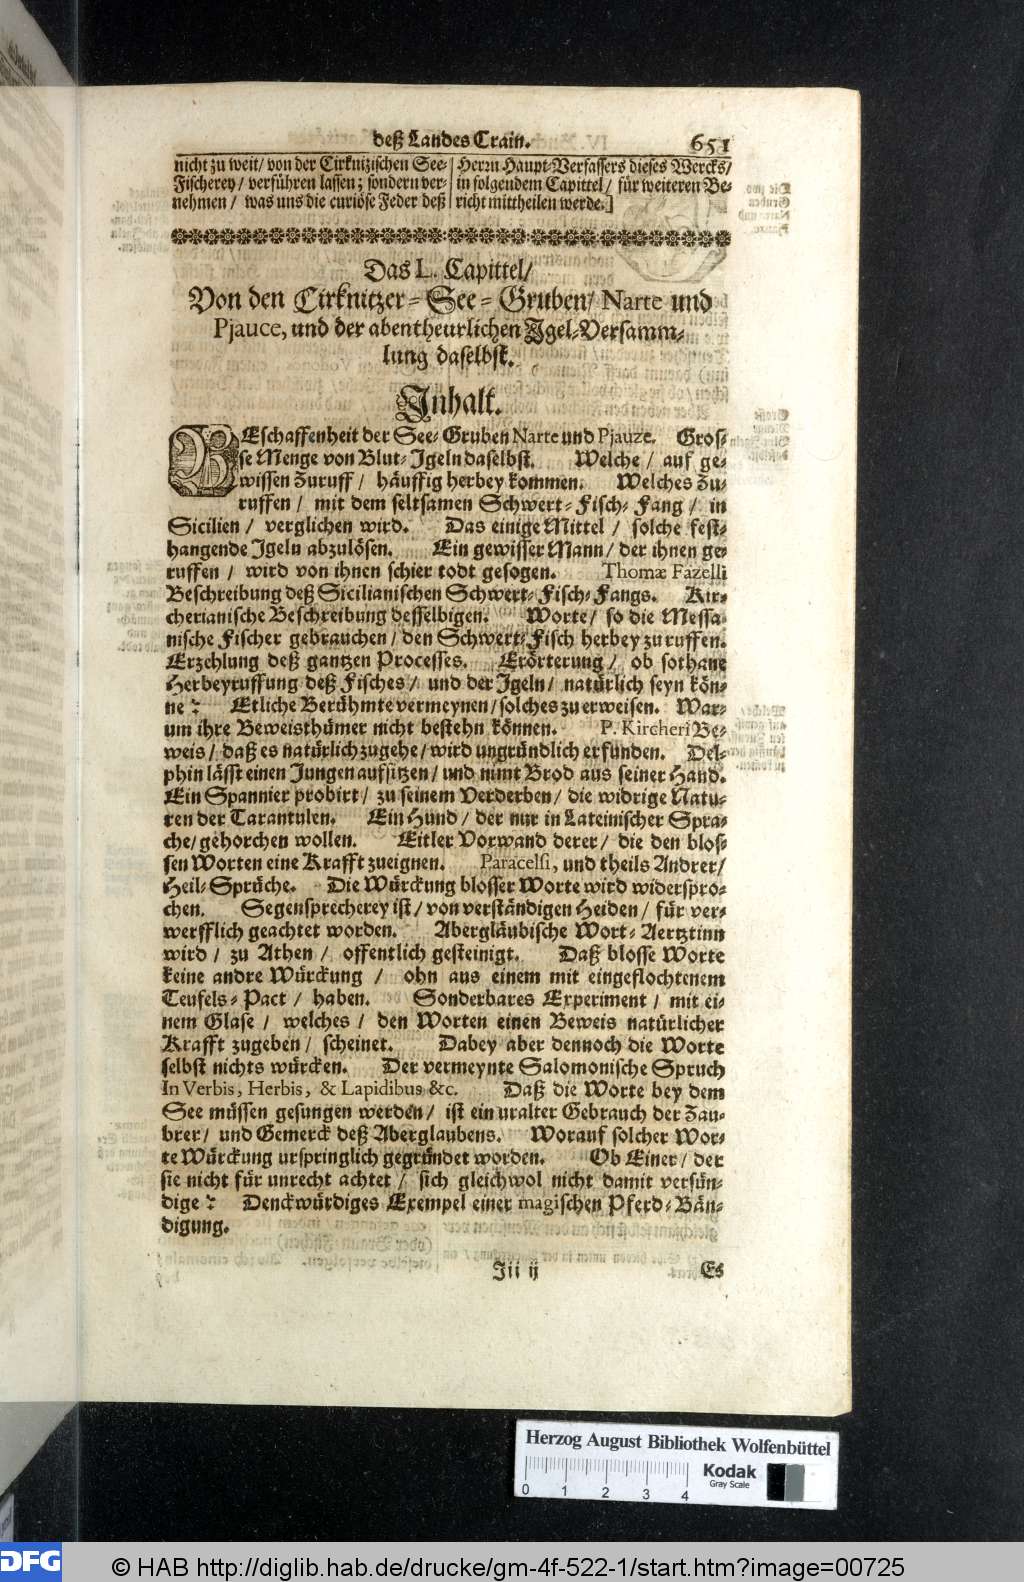 deß Landes Crain. 651
nicht zu weit/ von der Cirknizischen See-
Fischerey/ verführen lassen; sondern ver-
nehmen/ was uns die curiöse Feder deß
Herrn Haupt-Verfassers dieses Wercks/
in folgendem Capittel/ für weiteren Be-
richt mittheilen werde.]
Das L. Capittel/
Von den Cirknitzer-See-Gruben/ Narte und
Pjauce, und der abentheurlichen Igel-Versamm-
lung daselbst.
Inhalt.
BEschaffenheit der See-Gruben Narte und Pjauze. Gros-
se Menge von Blut-Igeln daselbst. Welche/ auf ge-
wissen Zuruff/ häuffig herbey kommen. Welches Zu-
ruffen/ mit dem seltsamen Schwert-Fisch-Fang/ in
Sicilien/ verglichen wird. Das einige Mittel/ solche fest-
hangende Igeln abzulösen. Ein gewisser Mann/ der ihnen ge-
ruffen/ wird von ihnen schier todt gesogen. Thomæ Fazelli
Beschreibung deß Sicilianischen Schwert-Fisch-Fangs. Kir-
cherianische Beschreibung desselbigen. Worte/ so die Messa-
nische Fischer gebrauchen/ den Schwert-Fisch herbey zu ruffen.
Erzehlung deß gantzen Processes. Erörterung/ ob sothane
Herbeyruffung deß Fisches/ und der Igeln/ natürlich seyn kön-
ne? Etliche Berühmte vermeynen/ solches zu erweisen. War-
um ihre Beweisthümer nicht bestehn können. P. Kircheri Be-
weis/ daß es natürlich zugehe/ wird ungründlich erfunden. Del-
phin lässt einen Jungen aufsitzen/ und nimt Brod aus seiner Hand.
Ein Spannier probirt/ zu seinem Verderben/ die widrige Natu-
ren der Tarantulen. Ein Hund/ der nur in Lateinischer Spra-
che/ gehorchen wollen. Eitler Vorwand derer/ die den blos-
sen Worten eine Krafft zueignen. Paracelsi, und theils Andrer/
Heil-Sprüche. Die Würckung blosser Worte wird widerspro-
chen. Segensprecherey ist/ von verständigen Heiden/ für ver-
werfflich geachtet worden. Abergläubische Wort-Aertztinn
wird/ zu Athen/ offentlich gesteinigt. Daß blosse Worte
keine andre Würckung/ ohn aus einem mit eingeflochtenem
Teufels-Pact/ haben. Sonderbares Experiment/ mit ei-
nem Glase/ welches/ den Worten einen Beweis natürlicher
Krafft zugeben/ scheinet. Dabey aber dennoch die Worte
selbst nichts würcken. Der vermeynte Salomonische Spruch
In Verbis, Herbis, & Lapidibus &c. Daß die Worte bey dem
See müssen gesungen werden/ ist ein uralter Gebrauch der Zau-
brer/ und Gemerck deß Aberglaubens. Worauf solcher Wor-
te Würckung urspringlich gegründet worden. Ob Einer/ der
sie nicht für unrecht achtet/ sich gleichwol nicht damit versün-
dige? Denckwürdiges Exempel einer magischen Pferd-Bän-
digung.
Iii ij Es
Herzog August Bibliothek Wolfenbüttel
0 1 2 3 4
Kodak
Gray Scale
DFG
© HAB http://diglib.hab.de/drucke/gm-4f-522-1/start.htm?image=00725